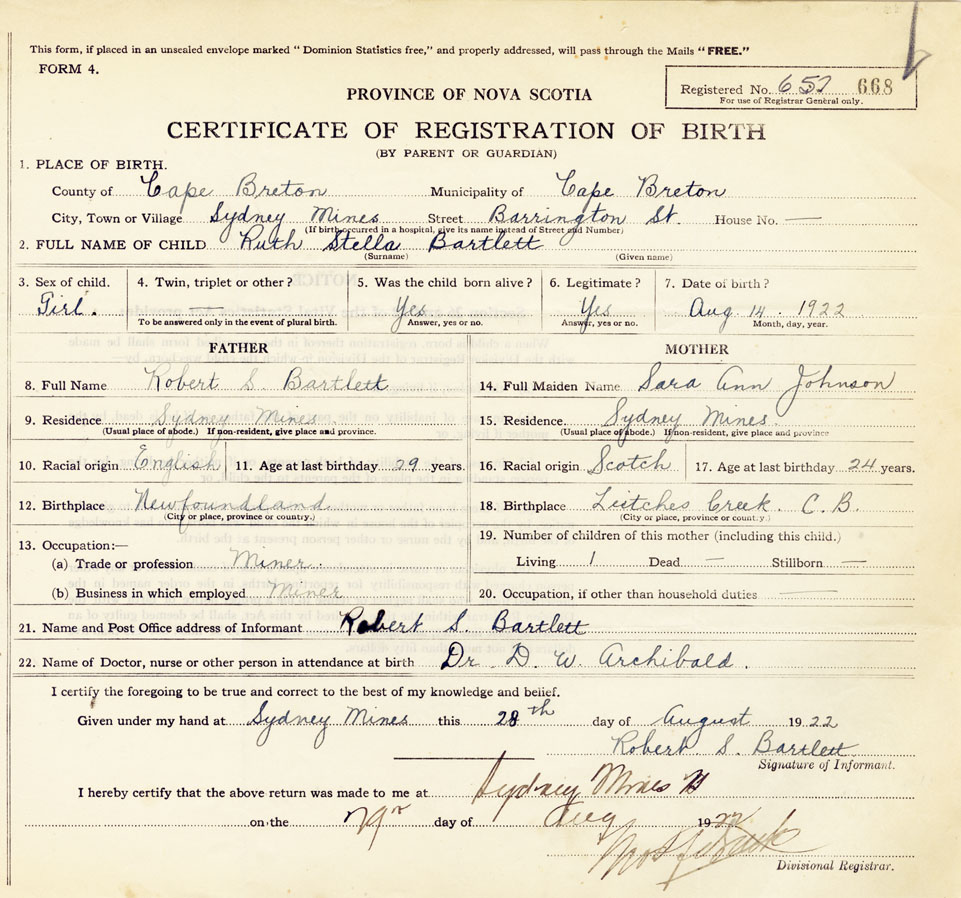 This form, if placed in an unsealed envelope marked "Dominion Statistics free," and properly addressed, will pass through the Mails "FREE."
FORM 4.
Registered No. 652 668
For use of Registrar General only.
PROVINCE OF NOVA SCOTIA
CERTIFICATE OF REGISTRATION OF BIRTH
(BY PARENT OR GUARDIAN)
1. PLACE OF BIRTH.
County of Cape Breton Municipality of Cape Breton
City, Town or Village Sydney Mines Street Barrington St. House No. —
(If birth occurred in a hospital, give its name instead of Street and Number)
2. FULL NAME OF CHILD Ruth Stella Bartlett
(Surname) (Given name)
3. Sex of child. 4. Twin, triplet or other? 5. Was the child born alive? 6. Legitimate? 7. Date of birth?
Girl. — Yes Yes Aug. 14. 1922
To be answered only in the event of plural birth. Answer, yes or no. Answer, yes or no. Month, day, year.
FATHER MOTHER
8. Full Name Robert S. Bartlett 14. Full Maiden Name Sara Ann Johnson
9. Residence Sydney Mines 15. Residence. Sydney Mines.
(Usual place of abode.) If non-resident, give place and province. (Usual place of abode.) If non-resident, give place and province
10. Racial origin English 11. Age at last birthday 29 years. 16. Racial origin Scotch 17. Age at last birthday 24 years.
12. Birthplace Newfoundland 18. Birthplace Leitches Creek. C.B.
(City or place, province or country.) (City or place, province or country.)
13. Occupation:— 19. Number of children of this mother (including this child.)
(a) Trade or profession Miner. Living 1 Dead — Stillborn —
(b) Business in which employed Miner 20. Occupation, if other than household duties —
21. Name and Post Office address of Informant Robert S. Bartlett
22. Name of Doctor, nurse or other person in attendance at birth Dr. D. W. Archibald.
I certify the foregoing to be true and correct to the best of my knowledge and belief.
Given under my hand at Sydney Mines this 28th day of August 1922
Robert S. Bartlett
Signature of Informant.
I hereby certify that the above return was made to me at Sydney Mines
on the 29 day of Aug 1922
Divisional Registrar.